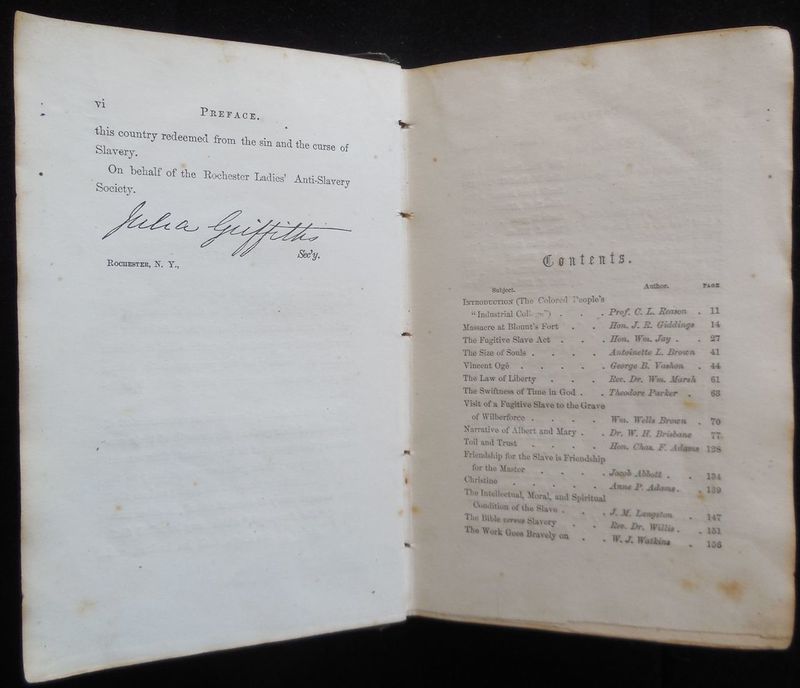 vi
PREFACE.
this country redeemed from the sin and the curse of
Slavery.
On behalf of the Rochester Ladies' Anti-Slavery
Society.
Julia Griffiths
Sec'y.
ROCHESTER, N. Y.,
Contents.
Subject. Author. PAGE
INTRODUCTION (The Colored People's
"Industrial College") . . . Prof. C. L. Reason . 11
Massacre at Blount's Fort . . Hon. J. R. Giddings 14
The Fugitive Slave Act . . . Hon. Wm. Jay . . 27
The Size of Souls . . . . . Antoinette L. Brown 41
Vincent Ogé . . . . . George B. Vashon . 44
The Law of Liberty . . . Rev. Dr. Wm. Marsh 61
The Swiftness of Time in God . . Theodore Parker . 63
Visit of a Fugitive Slave to the Grave
of Wilberforce . . . . Wm. Wells Brown . 70
Narrative of Albert and Mary . . Dr. W. H. Brisbane 77
Toil and Trust . . . . Hon. Chas. F. Adams 128
Friendship for the Slave is Friendship
for the Master . . . . Jacob Abbott . . 134
Christine . . . . . Anne P. Adams . . 139
The Intellectual, Moral, and Spiritual
Condition of the Slave . . . J. M. Langston . 147
The Bible versus Slavery . . Rev. Dr. Willis . . 151
The Work Goes Bravely on . . W. J. Watkins . 156